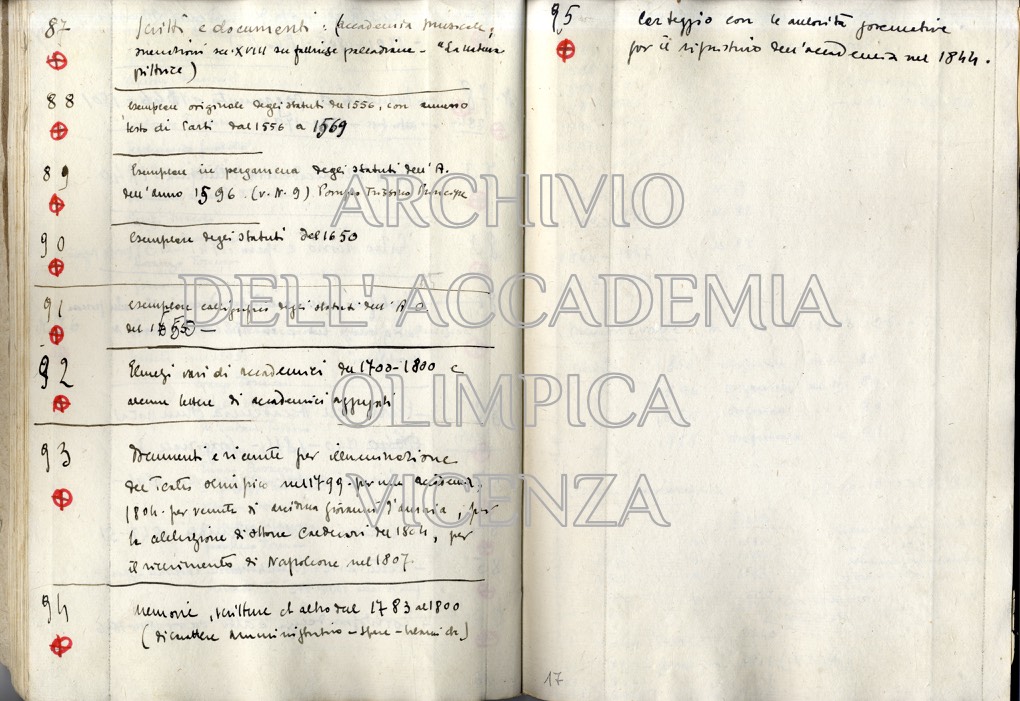 87 Scritti e documenti: (accademia musicale,
sec. XVIII su fabbriche palladiane - "La natura
pittrice)
88 esemplare originale degli statuti del 1556, con annesso
testo di Parti dal 1556 a 1569
89 Esemplare in pergamena degli statuti dell'A.
dell'anno 1596. (v. N. 9) Pompeo Trissino
90 esemplare degli statuti del 1650
91 esemplare calligrafico degli statuti dell'A.O.
del
92 Elenchi vari di accademici dal 1700-1800 e
alcune lettere di accademici aggregati
93 Documenti e ricevute per illuminazione
del Teatro olimpico nel 1799. per una accademia,
1804. per venuta di arciduca giovanni d'austria, per
la di ottone Calderari del 1804, per
il ricevimento di Napoleone nel 1807.
94 Memorie, scritture et altro dal 1783 al 1800
(di carattere amministrativo - spese -
95 Carteggio con le autorità governative
per il ripristino dell'accademia nel 1844.
17
ARCHIVIO
DELL'ACCADEMIA
OLIMPICA
VICENZA